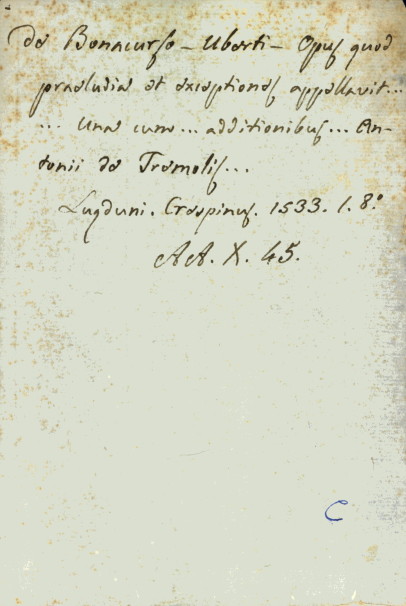 de Bonacurso - Uberti - Opus quod
praeludia et exceptiones appellavit...
... una cum... additionibus... An-
tonii de Tremolis...
Lugduni. Crespinus. 1533. 1. 8.º
AA. X. 45.
C